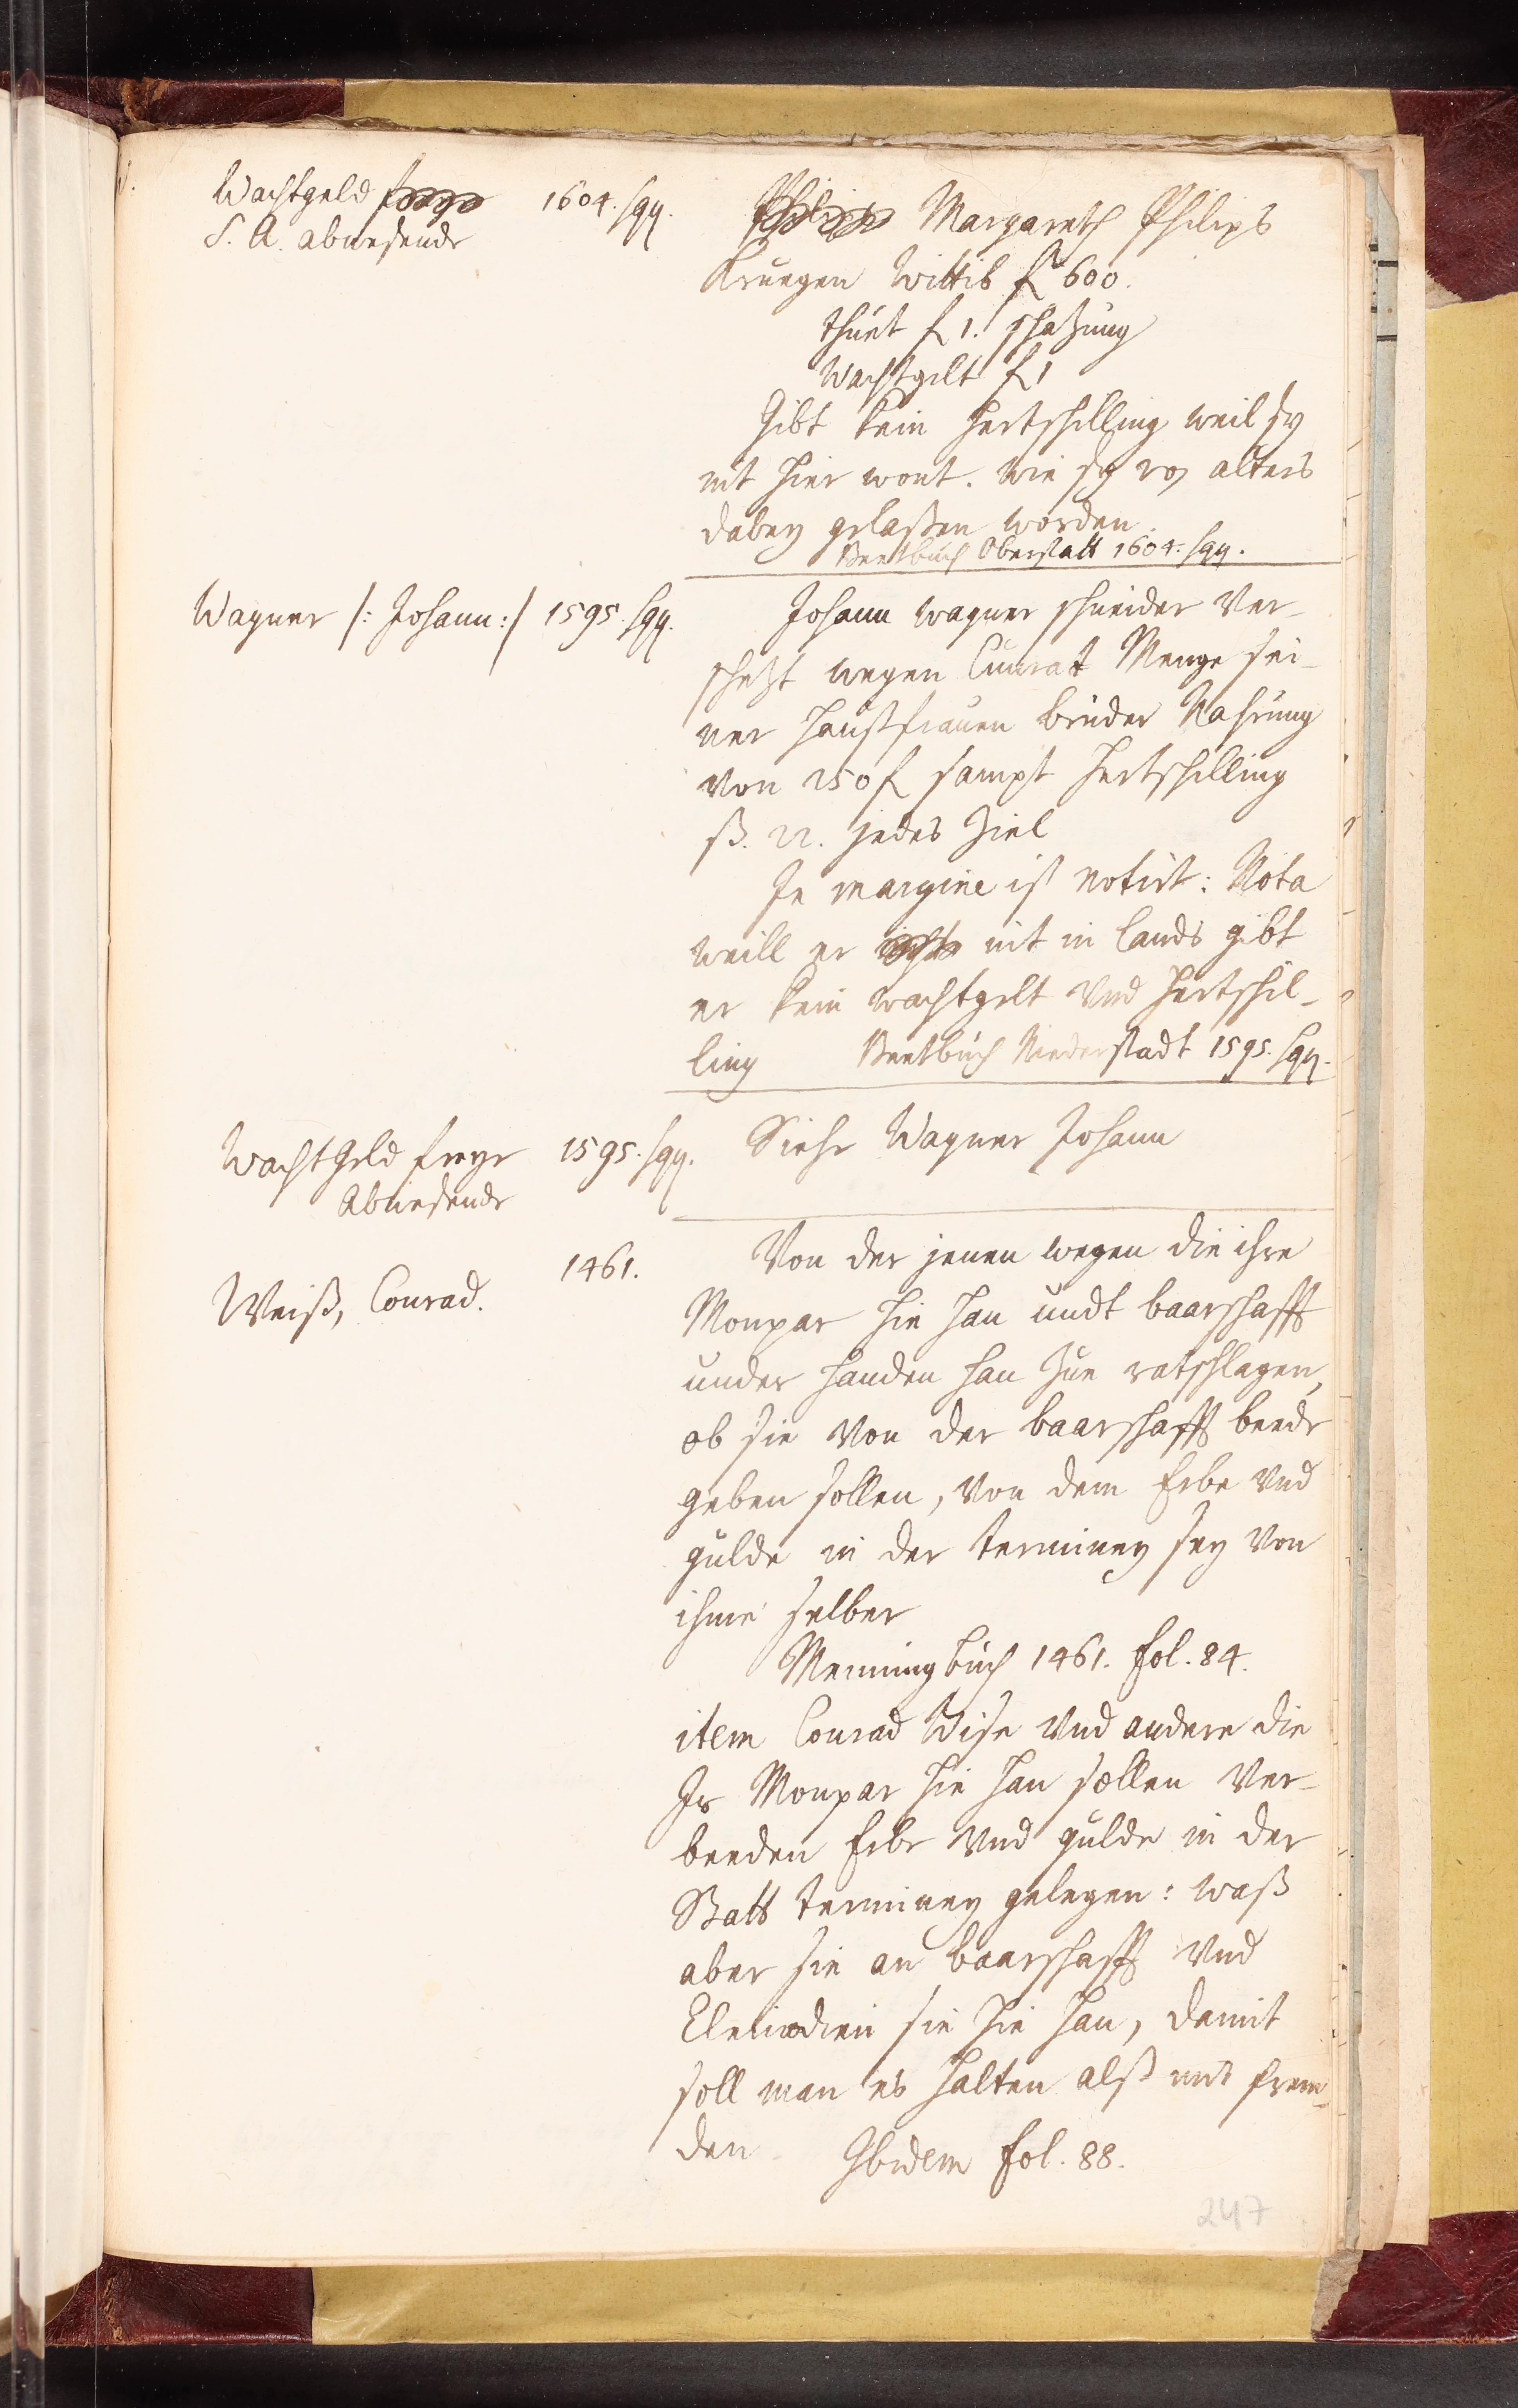 Wachtgeld freye 1604. sqq.
S. A. abwesende
Philips Margareth Philips
Kruegen Wittib f 600.
thuet f 1. schatzung
Wachtgelt f 1
Gibt kein hertschilling weil sy
nit hier wont. wie sy von alters
dabey gelaßen worden.
Beetbuch Oberstatt 1604. sqq.
Wagner /: Johann :/ 1595. sqq.
Johann wagner schneider Ver-
schetzt wegen Cunrat Menge sei-
ner haußfrauen bruder Nahrung
von 250 f sampt hertschilling
ß. 22. jedes Ziel
In margine ist notirt: Nota
weill er nit in lands gibt
er kein wachtgelt Vnd hertschil-
ling Beetbuch Niederstadt 1595. sqq.
WachtGeld freye 1595. sqq. Siehe Wagner Johann
Abwesende
Weiß, Conrad. 1461.
Von der jenen wegen die ihre
Monpar hie han undt baarschafft
under handen han Zue ratschlagen,
ob sie Von der baarschafft beede
geben sollen, Von dem Erbe Vnd
gulde in der terminey sey Von
ihme selber
Meinung buch 1461. fol. 84.
item Conrad Wise Vnd andere die
Ir Monpar hie han sollen Ver-
beeden Erbe Vnd gulde in der
Statt terminey gelegen: waß
aber sie an baarschafft Vnd
Cleinodien sie hie han, damit
soll man es halten alß mit frem-
den Ibidem fol. 88.
247